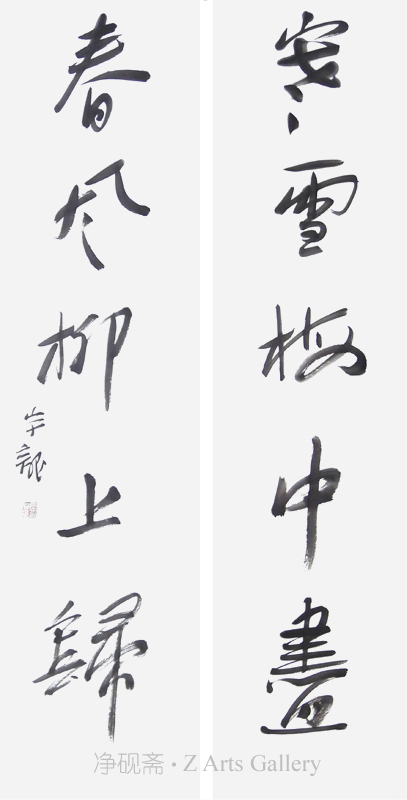 寒雪梅中盡
春風柳上歸
净砚斋 · Z Arts Gallery